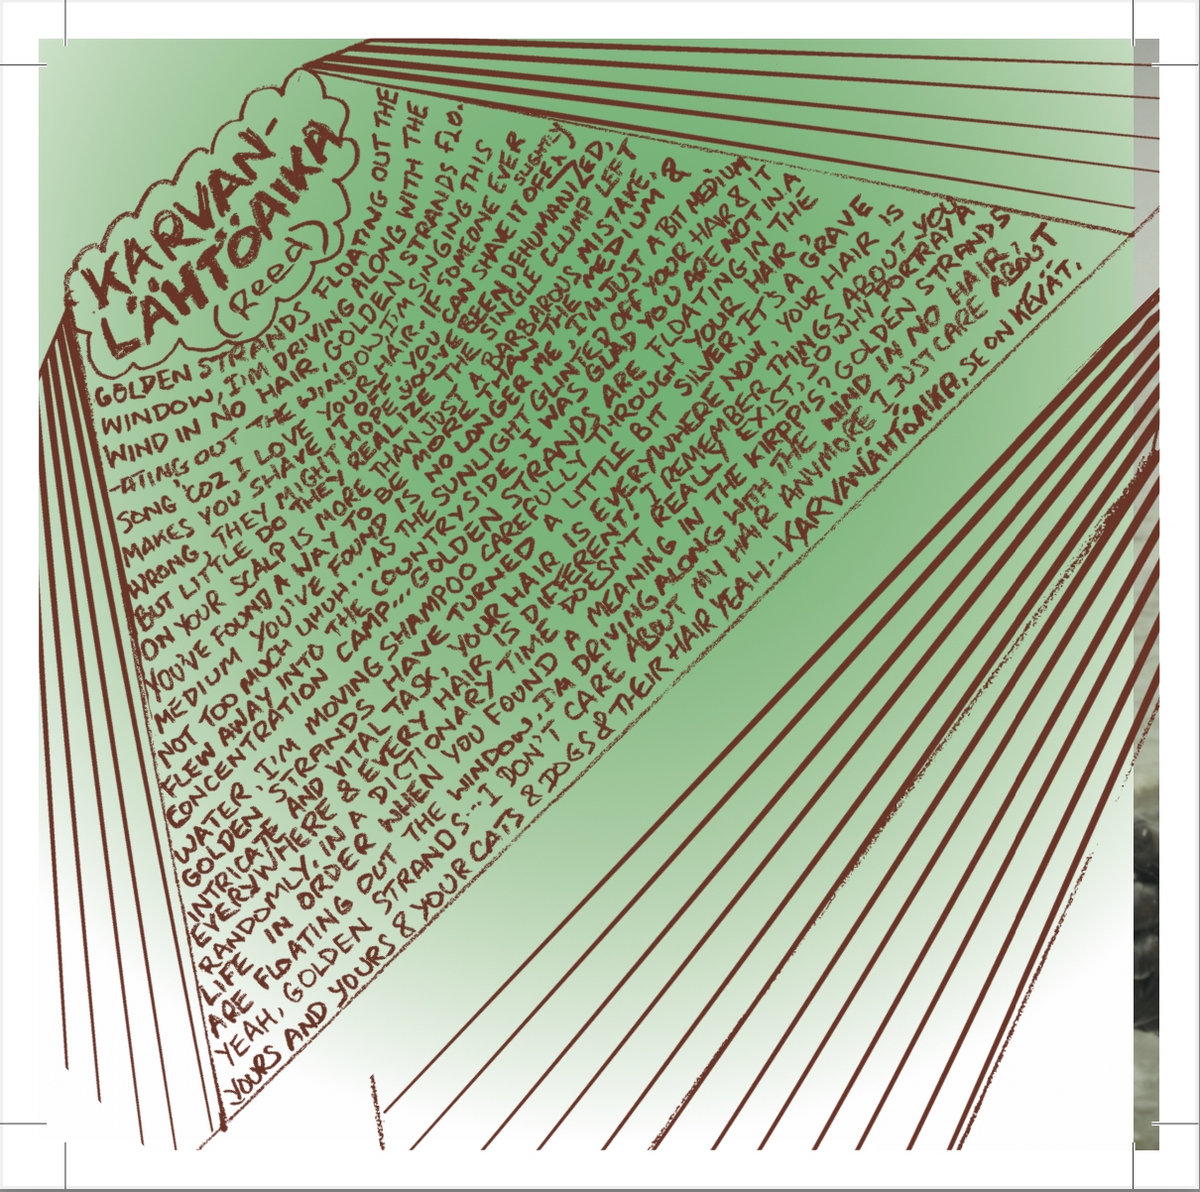 KARVAN-
LÄHTÖAIKA
(Reed)
GOLDEN STRANDS FLOATING OUT THE
WINDOW, I'M DRIVING ALONG WITH THE
WIND IN NO HAIR, GOLDEN STRANDS FLO.
-ATING OUT THE WINDOW, I'M SINGING THIS
SONG 'COZ I LOVE YOUR HAIR. IF SOMEONE EVER
MAKES YOU SHAVE IT OFF, YOU CAN SHAVE IT OFF SLIGHTLY
WRONG, THEY MIGHT HOPE YOU'VE BEEN DEHUMANIZED,
BUT LITTLE DO THEY REALIZE THE SINGLE CLUMP LEFT
ON YOUR SCALP IS MORE THAN JUST A BARBAROUS MISTAKE,
YOU'VE FOUND A WAY TO BE MORE THAN THE MEDIUM & 
MEDIUM YOU'VE FOUND IS NO LONGER ME, I'M JUST A BIT MEDIUM
NOT TOO MUCH UHUH... AS THE SUNLIGHT GLINTED OFF YOUR HAIR & IT
FLEW AWAY INTO THE COUNTRYSIDE, I WAS GLAD YOU ARE NOT IN A
CONCENTRATION CAMP... GOLDEN STRANDS ARE FLOATING IN THE
WATER, I'M MOVING SHAMPOO CAREFULLY THROUGH YOUR HAIR,
GOLDEN STRANDS HAVE TURNED A LITTLE BIT SILVER, IT'S A GRAVE
INTRICATE AND VITAL TASK, YOUR HAIR IS EVERYWHERE NOW, YOUR HAIR IS
EVERYWHERE & EVERY HAIR IS DIFFERENT, I REMEMBER THINGS ABOUT YOU
RANDOMLY, IN A DICTIONARY TIME DOESN'T REALLY EXIST, SO WHY PORTRAY A
LIFE IN ORDER WHEN YOU FOUND A MEANING IN THE KIRPPIS? GOLDEN STRANDS
ARE FLOATING OUT THE WINDOW, I'M DRIVING ALONG WITH THE WIND IN NO HAIR,
YEAH, GOLDEN STRANDS... I DON'T CARE ABOUT MY HAIR ANYMORE, I JUST CARE ABOUT
YOURS AND YOURS & YOUR CATS & DOGS & THEIR HAIR YEAH... KARVANLÄHTÖAIKA, SE ON KEVÄT.